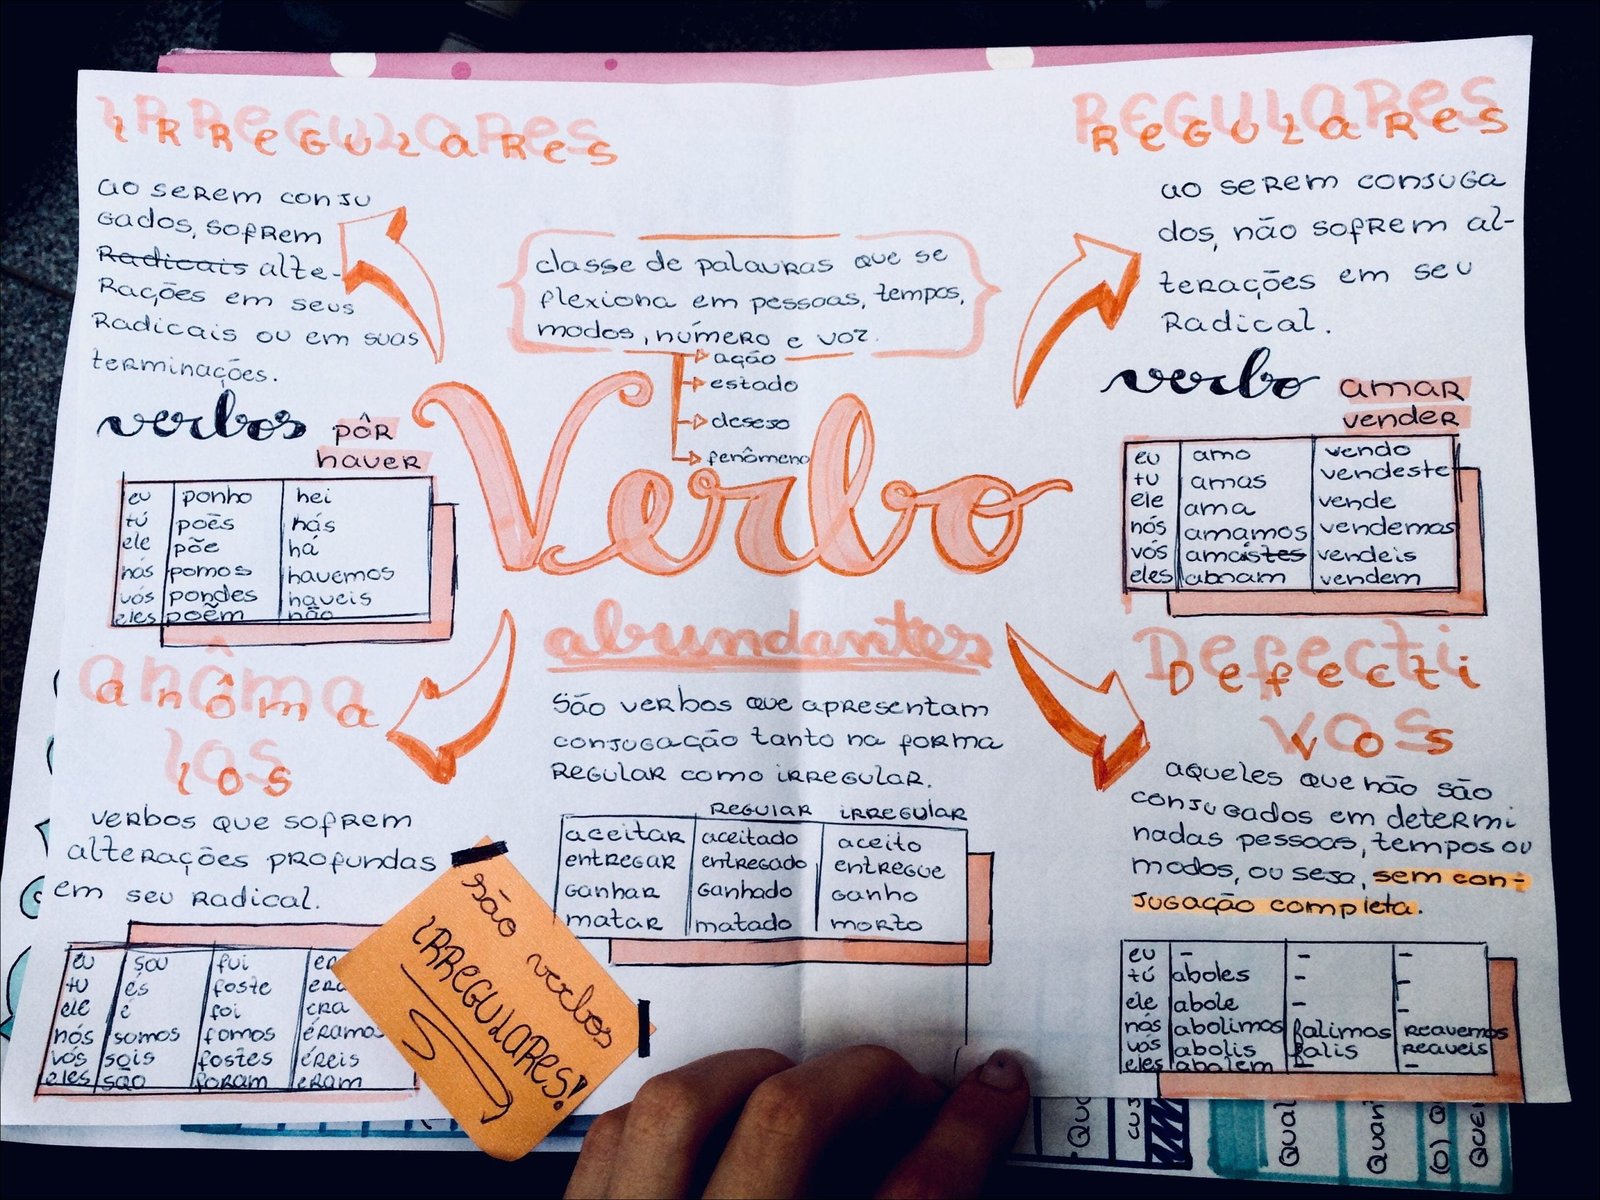 IRREGULARES
ao serem conju
gados, sofrem
Radicais alte-
rações em seus
radicais ou em suas
terminações.
verbos pôr
haver
eu ponho hei
tú poẽs hás
ele põe há
nós pomos havemos
vós pondes haveis
eles poẽm hão
classe de palavras que se
flexiona em pessoas, tempos,
modos, número e voz.
ação
estado
desejo
fenômeno
Verbo
REGULARES
ao serem conjuga
dos, não sofrem al-
terações em seu
radical.
verbo amar
vender
eu amo vendo
tu amas vendeste
ele ama vende
nós amamos vendemos
vós amaistes vendeis
eles vendem
anôma
los
verbos que sofrem
alterações profundas
em seu radical.
eu sou fui
tu és foste
ele é foi era
nós somos fomos éramo
vós sois fostes éreis
eles são foram eram
são verbos
IRREGULARES!
abundantes
São verbos que apresentam
conjugação tanto na forma
regular como irregular.
regular irregular
aceitar aceitado aceito
entregar entregado entregue
ganhar ganhado ganho
matar matado morto
Defecti
vos
aqueles que não são
conjugados em determi
nadas pessoas, tempos ou
modos, ou seja, sem con-
jugação completa.
eu - - -
tú aboles - -
ele abole - -
nós abolimos falimos reavemos
vós abolis falis reaveis
eles abolem - -
Qua
cuj
Qual
Quan
(o) q
Quei